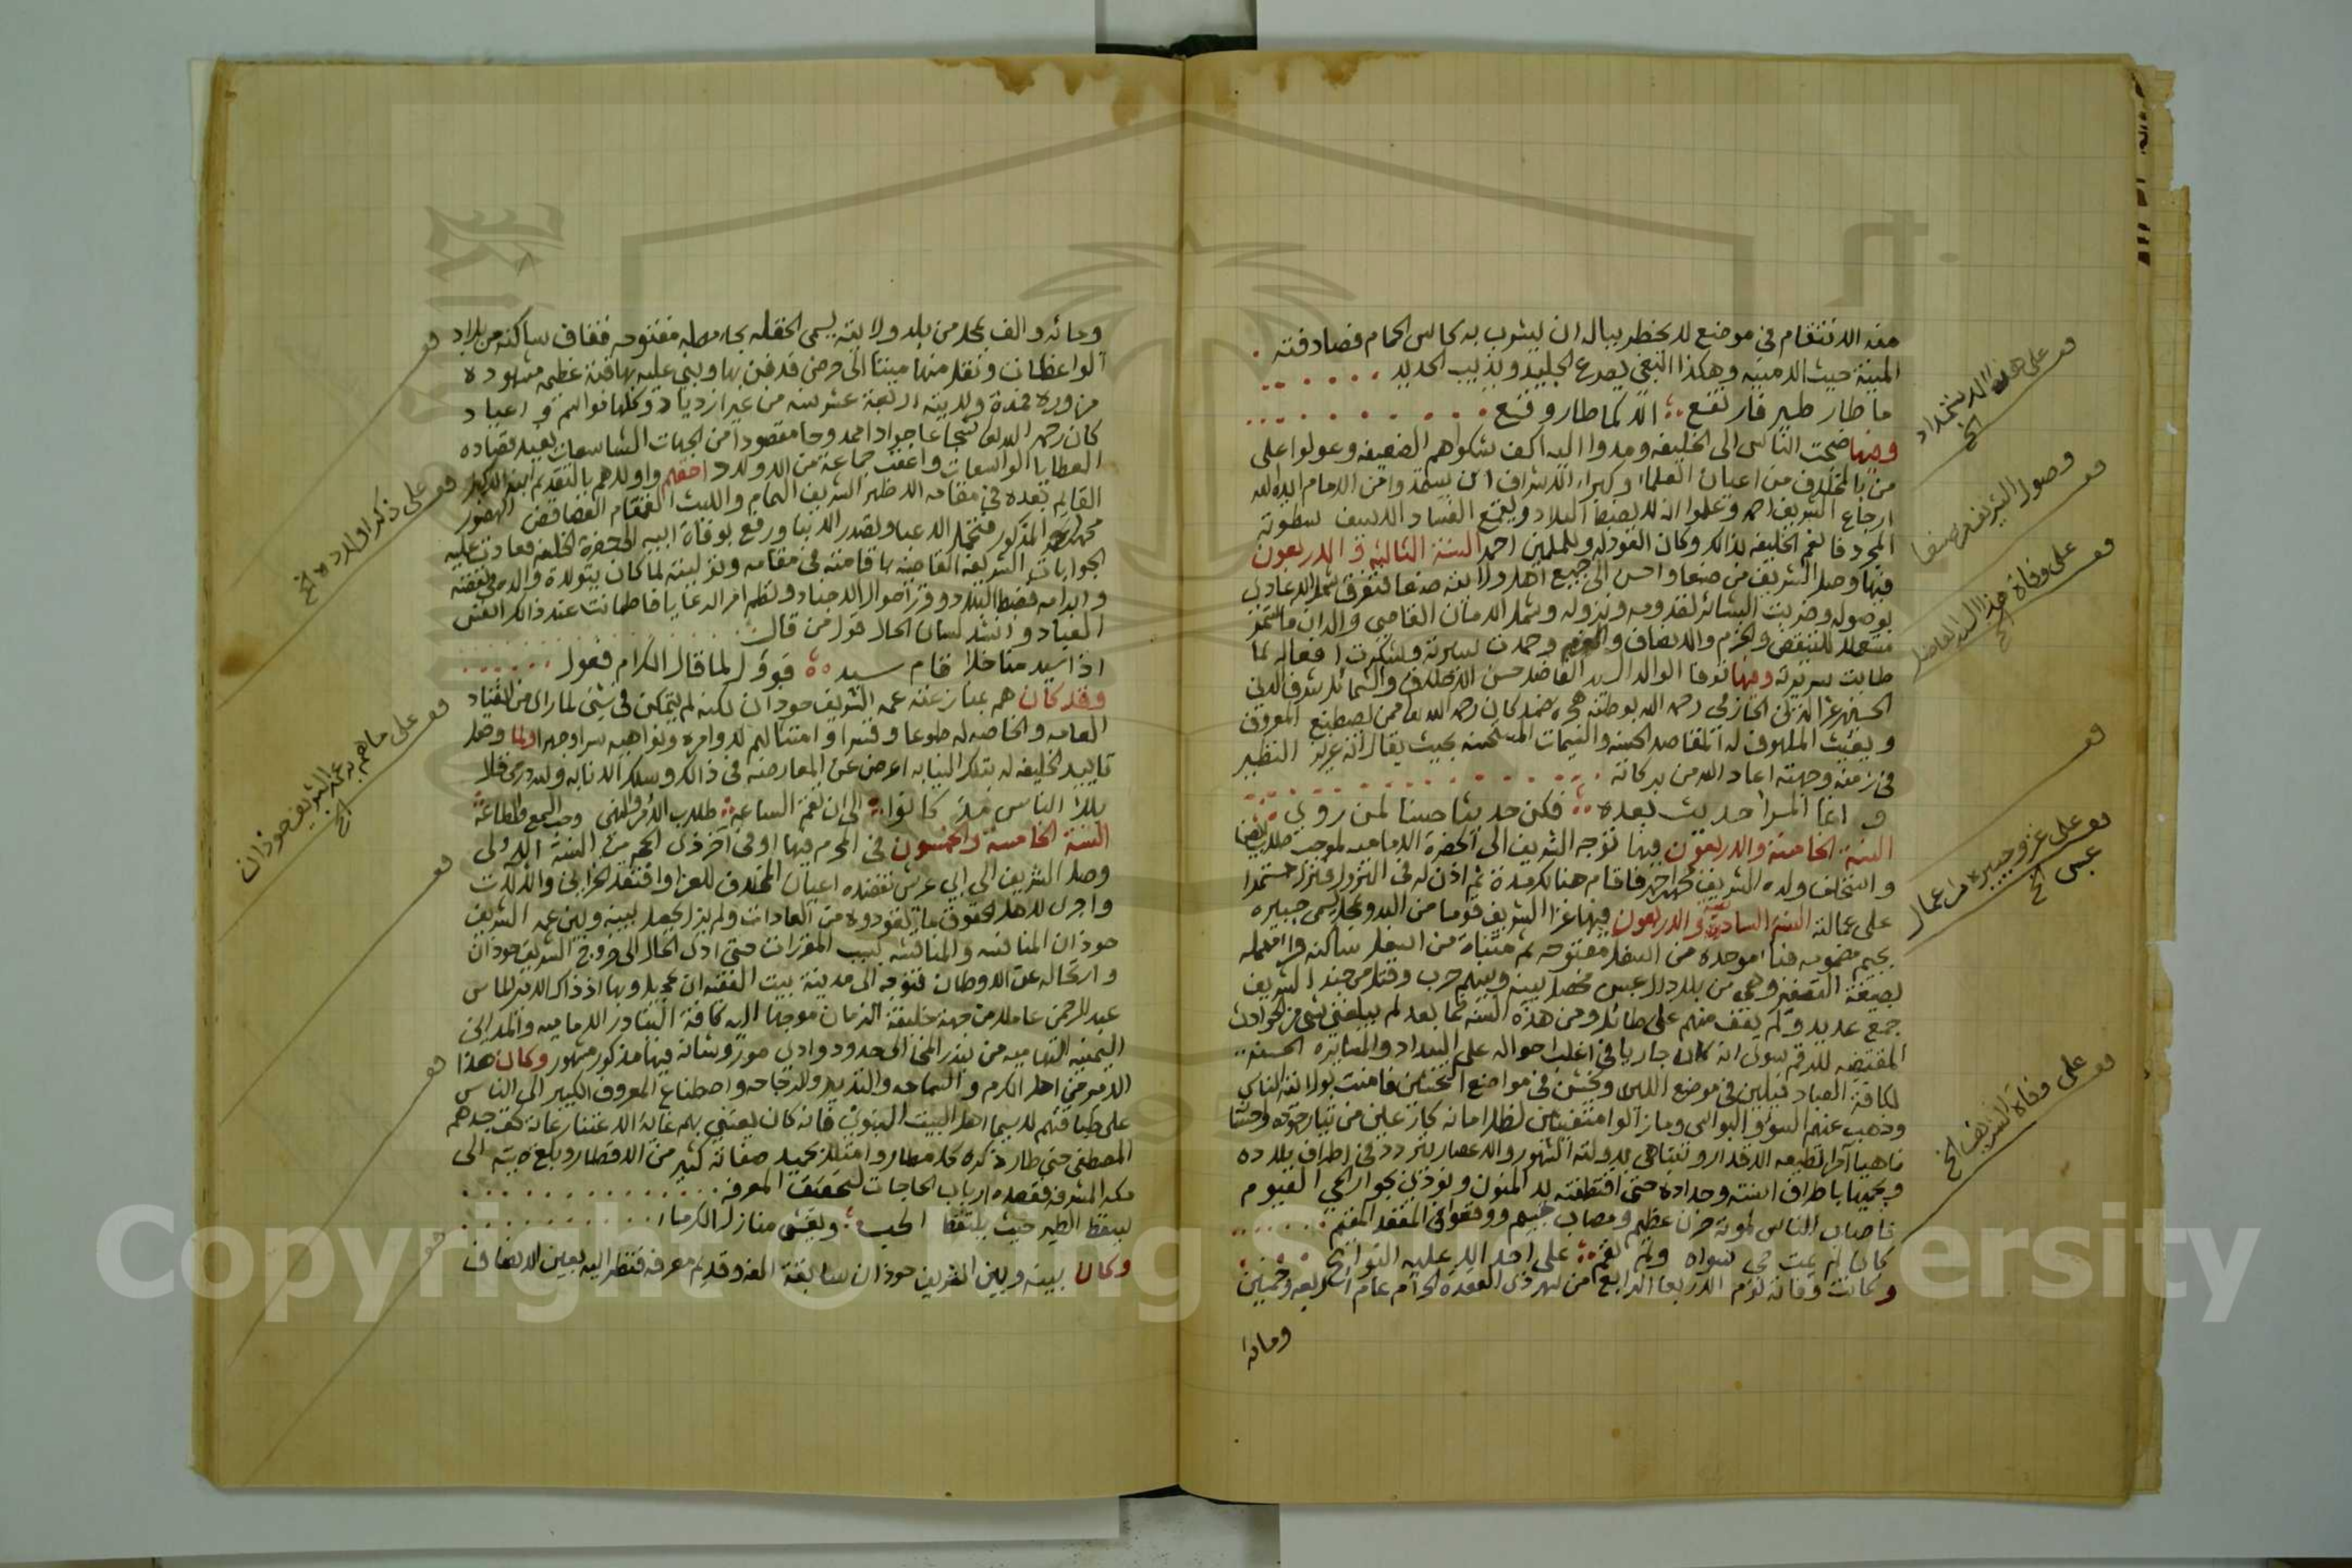 منه الانتقام في موضع لا يخطر ببال ان يشرب به كاس الحمام فصادفته
المنية حيث الامنيه وهكذا البغي يصرع الجليد ويذيب الحديد
ما طار طير فارتفع الا كما طار وقع
ومنها ضجت الناس الى الخليفه ومدوا اليه اكف شكواهم الضعيفه وعولوا على
من بالمخلاف من اعيان العلماء وكبراء الاشراف ان يستمدوا من الامام ايده الله
ارجاع الشريف احمد وعلموا انه لا يضبط البلاد ويقمع الفساد الا سيف سطوته
المجرد فانعم الخليفه بذالك وكان العود له وللمسلمين احمد السنة الثالثه والاربعون
فيها وصل الشريف من صنعا واحسن الى جميع اهل ولايته
بوصوله وضربت البشائر لقدومه ونزوله وشمل الامان القاصي والدان
والحزم والانصاف وحمدت سيرته وشكرت افعاله لما
طابت سريرته ومنها توفا الوالد السيد الفاضل حسن الاخلاق والشمائل شرف الدين
الحسين بن عز الدين الحازمي رحمه الله بوطنه هجرة ضمد كان رحمه الله تعا ممن يصطنع المعروف
ويغيث الملهوف له المقاصد الحسنه والشيمات المستحسنه بحيث يقال انه عزيز النظير
في زمنه وجهته اعاد الله من بركاته
وانما المرا حديث بعده فكن حديثا حسنا لمن روى
السنة الخامسة والاربعون فيها توجه الشريف الى الحضرة الاماميه لموجب طلب ايضا
واستخلف ولده الشريف محمد بن احمد فاقام هنالك مدة ثم اذن له في النزول فنزل مستمرا
على عمالته السنة السادسة والاربعون فيها غزا الشريف قوما من البدو بمحل يسمى جبيره
بجيم مضمومه فباء موحده من اسفل مفتوحه ثم مثناة من اسفل ساكنه وراء مهمله
بصيغة التصغير وهي من بلاد ال عبس فحصل بينه وبينهم حرب وقتل من جند الشريف
جمع عديد ولم يقف منهم على طائل ومن هذه السنه فما بعد لم يبلغني شي من الحوادث
المقتضيه للرقم سوى انه كان جاريا في اغلب احواله على السداد والمسايره الحسنه
لكافة العباد فيلين في موضع اللين ويخشن في مواضع التخشين فامنت بولايته الناس
وذهب عنهم السو والبواس وما زالوا متفيئين لظل امانه
الاقدار وتتباهى بدولته الشهور والاعصار يتردد في اطراف بلاده
ويحميها باطراف اسنته وحداده حتى اقتطفته يد المنون ونودي بجوار الحي القيوم
فاصاب الناس لموته حزن عظيم ومصاب جسيم ووقعوا في المقعد المقيم
كان لم يمت حي سواه ولم تقم على احد الا عليه النوائح
وكانت وفاته يوم الاربعا الرابع من شهر ذي القعدة الحرام عام اربعه وخمسين
ومائة
قف على هذا الاستمداد الخ
قف وصول الشريف من صنعا
قف على وفاة هذا السيد الفاضل الخ
قف
قف على غزو جبيره من اعمال عبس الخ
قف على وفاة الشريف الخ
ومائه والف بمحل من بلد ولايته يسمى الحقله بحاء مهمله مفتوحه فقاف ساكنه من بلاد
الواعظات ونقل منها ميتا الى حرض فدفن بها وبني عليه بها قبة عظيمه مشهوده
مزوره ومدة ولايته اربعة عشر سنه من غير ازدياد وكلها مواسم واعياد
كان رحمه الله تعا شجاعا جوادا ممدوحا مقصودا من الجهات الشاسعات يفيد قصاده
العطايا الواسعات واعقب جماعة من الاولاد احقهم واولاهم بالتقديم ابنه الاكبر
القايم بعده في مقامه الاظهر الشريف الهمام والليث القمقام الهصور
محمد بن احمد المذكور فتحمل الاعبا وتصدر للانبا ورفع بوفاة ابيه الى حضرة الخليفه فعادت عليه
الجوابات الشريفه القاضيه باقامته في مقامه وتوليته لما كان يتولاه والده
فضبط البلاد وقرر احوال الاجناد ونظم امر الرعايا فاطمانت عند ذالك انفس
العباد وانشد لسان الحال قول من قال
اذا سيد منا خلا قام سيد قوول لما قال الكرام فعول
وقد كان هم بمنازعته عمه الشريف حوذان لكنه لم يتمكن في شي لما راى من انقياد
العامه والخاصه له طوعا وقسرا وامتثالهم لاوامره ونواهيه سرا وجهرا ولما وصل
تاييد الخليفه له بتلك النيابه اعرض عن المعارضه في ذالك وسلك الانابه
بلا الناس مذ كانوا الى ان تقم الساعه طلاب الامر والنهي وحب السمع والطاعة
السنة الخامسة والخمسون في المحرم فيها او في آخر ذي الحجه من السنة الاولى
وصل الشريف الى ابي عريش تقصده اعيان المخلاف للعزا وافتقد الخزاين والآلات
واجرى لاهل الحقوق ما يتعودوه من العادات ولم يزل يحصل بينه وبين عمه الشريف
حوذان المنافسه والمناقشه بسبب المقررات حتى ادى الحال الى خروج الشريف حوذان
وارتحاله عن الاوطان فتوجه الى مدينة بيت الفقيه ابن عجيل وبها اذ ذاك الامير الماس
عبد الرحمن عاملا من جهة خليفة الزمان موجها اليه كافة البنادر الاماميه والمداين
اليمنيه التهاميه من بندر المخا الى حدود وادي مور وشانه فيها مذكور مشهور وكان هذا
الامير من اهل الكرم والسماحه والتدبير والرجاحه واصطناع المعروف الكبير الى الناس
على طبقاتهم لاسيما اهل البيت النبوي فانه كان يعتني بهم غاية الاعتناء رعاية لحق جدهم
المصطفى حتى طار ذكره كل مطار وامتلا بحميد صفاته كثير من الاقطار وبلغ صيته الى
مكه المشرفه فقصده ارباب الحاجات لتحقيق المعرفه
يسقط الطير حيث يلتقط الحب وتغشى منازل الكرماء
وكان بينه وبين الشريف حوذان سابقة الفه وقديم معرفه فنظر اليه بعين الانصاف
قف
قف على ذكر اولاده الخ
قف على ما هم به عمه الشريف حوذان الخ
قف
قف
قف
Copyright © King Saud University